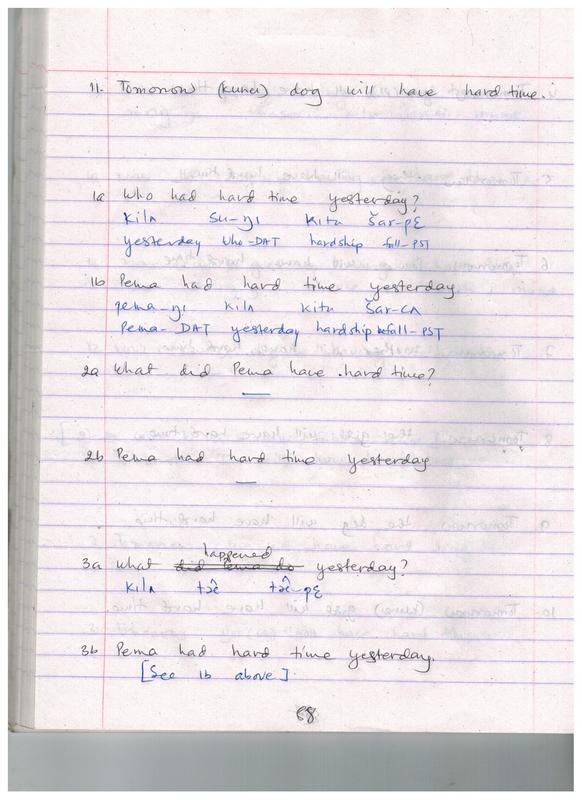 11. Tomorrow (kuner) dog will have hard time.
1a Who had hard time yesterday?
kilʌ su-ŋi kitʌ šar-pɛ
yesterday who-DAT hardship fall-PST
1b Pema had hard time yesterday
pema-ŋi kilʌ kitʌ šar-cʌ
Pema-DAT yesterday hardship fall-PST
2a What did Pema have hard time?
—
2b Pema had hard time yesterday
—
happened
3a What did Pema do yesterday?
kilʌ tə̂ tə̂-pɛ
3b Pema had hard time yesterday.
[See 1b above]
68